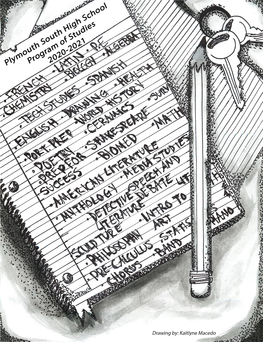 Plymouth South High School
Program of Studies
2020-2021
FRENCH · LATIN · P.E.
CHEMISTRY · BIOLOGY · ALGEBRA
· TECH STUDIES · SPANISH
· ENGLISH · PAINTING · HEALTH
WORLD HISTORY
· PORT. PREP · CERAMICS
· POETRY · SHAKESPEARE · MATH
PREP FOR · BIOMED
SUCCESS
· AMERICAN LITERATURE
· ANTHOLOGY · MEDIA STUDIES
DETECTIVE · SPEECH AND
LITERATURE DEBATE
SCULPTURE · INTRO TO
PHILOSOPHY ART
· PRE-CALCULUS · PIANO
CHORUS BAND
Drawing by: Kaitlyne Macedo